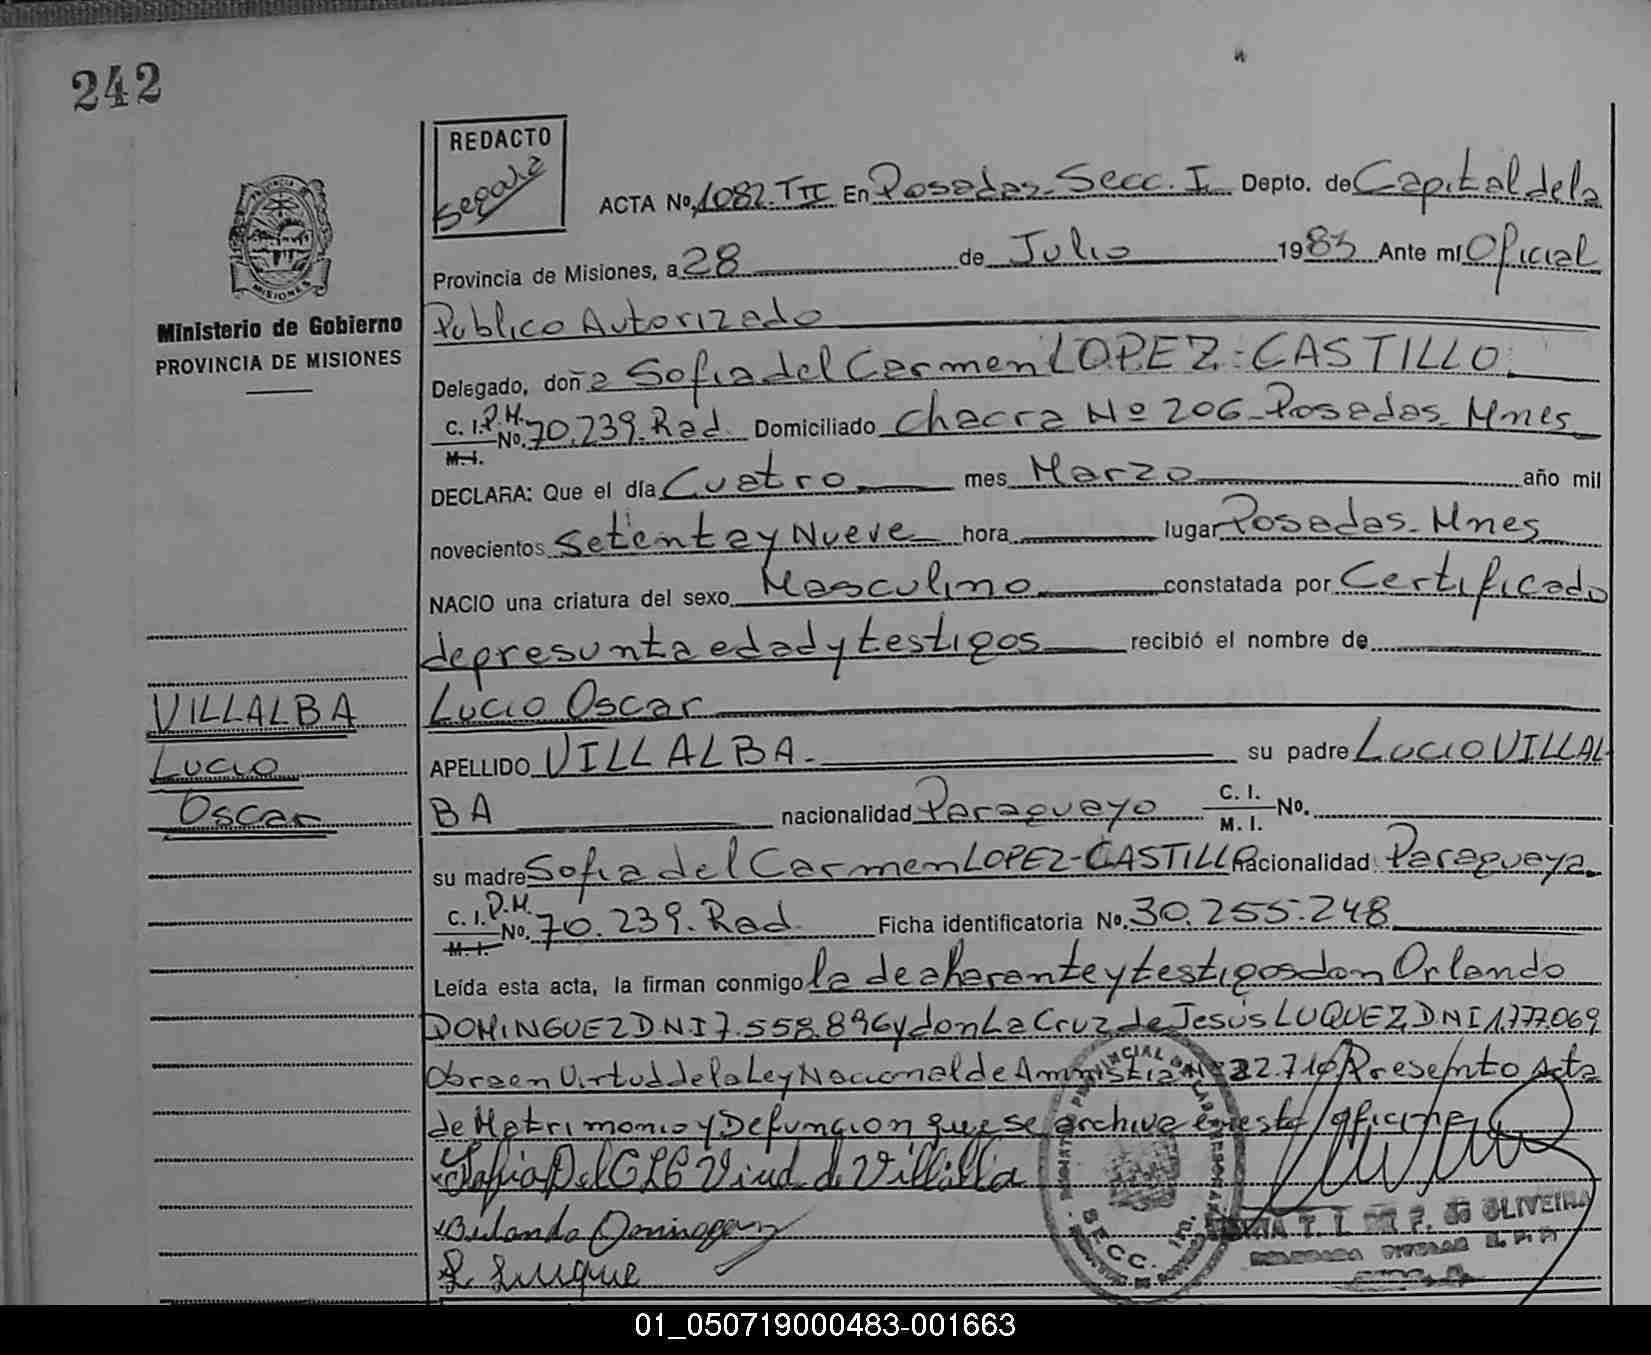 242
REDACTO
ACTA No. 1082. TII En Posadas. Secc. I Depto. de Capital de la
Provincia de Misiones, a 28 de Julio 1983 Ante mí Oficial
MISIONES
Ministerio de Gobierno
PROVINCIA DE MISIONES
Publico Autorizado
Delegado, doña Sofia del Carmen LOPEZ-CASTILLO
C. I. P.M. No. 70.239. Rad. Domiciliado Chacra Nº 206-Posadas. Mnes
M. I.
DECLARA: Que el día Cuatro mes Marzo año mil
novecientos Setenta y Nueve hora lugar Posadas. Mnes
NACIO una criatura del sexo Masculino constatada por Certificado
de presunta edad y testigos recibió el nombre de
VILLALBA Lucio Oscar
Lucio APELLIDO VILLALBA. su padre Lucio VILLAL-
Oscar BA nacionalidad Paraguayo C. I. M. I. No.
su madre Sofia del Carmen LOPEZ-CASTILLO nacionalidad Paraguaya.
C. I. P.M. M. I. No. 70.239. Rad Ficha identificatoria No. 30.255.248
Leída esta acta, la firman conmigo la declarante y testigos don Orlando
DOMINGUEZ DNI 7.558.896 y don La Cruz de Jesús LUQUEZ, DNI 1.777.069
Obra en Virtud de la Ley Nacional de Amnistia Nº 22.710 Presento Acta
de Matrimonio y Defuncion que se archiva en esta oficina
Sofia Del C L C Viud. de Villalba
Orlando Dominguez
L Luque
SECC.
OLIVEIRA
01_050719000483-001663